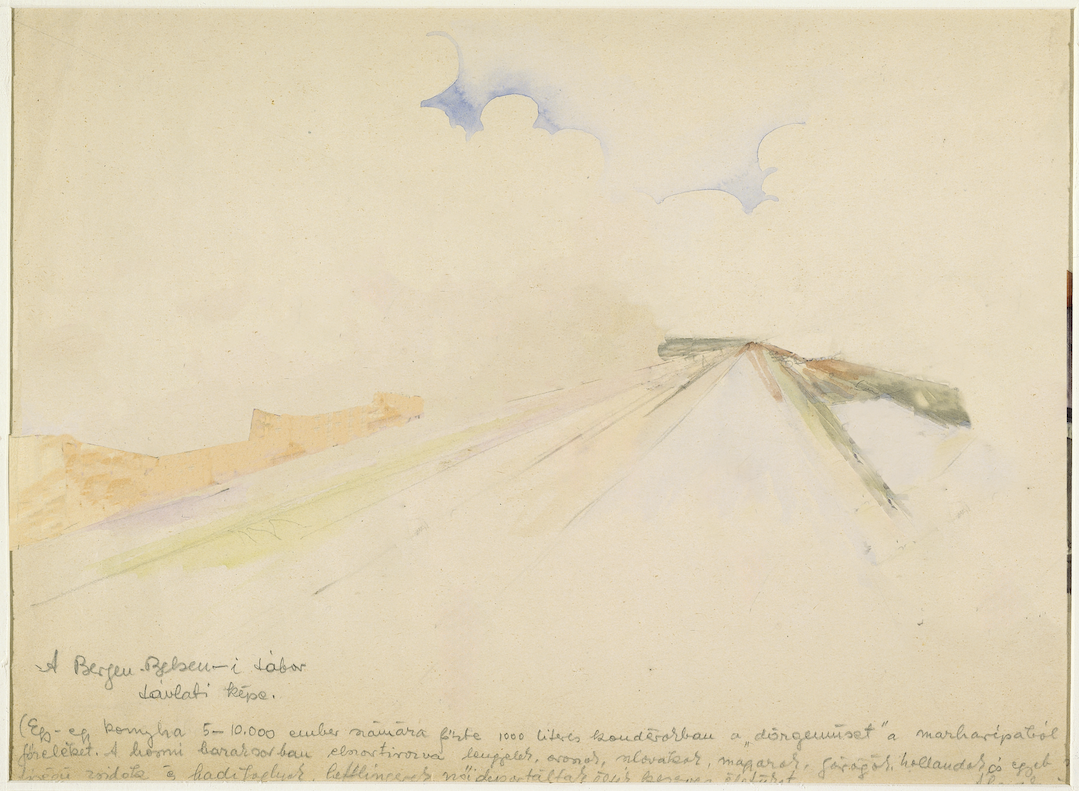 A Bergen-Belsen-i tábor
távlati képe.
(Egy-egy konyha 5–10.000 ember számára főzte 1000 literes kondérokban a „dörgemüset" a marharépából
főzeléket. A hosszú baraksorban elszortirozva lengyelek, oroszok, szlovákok, magyarok, görögök, hollandok és egyéb
zsidók és hadifoglyok, heftlingerek női deportáltak